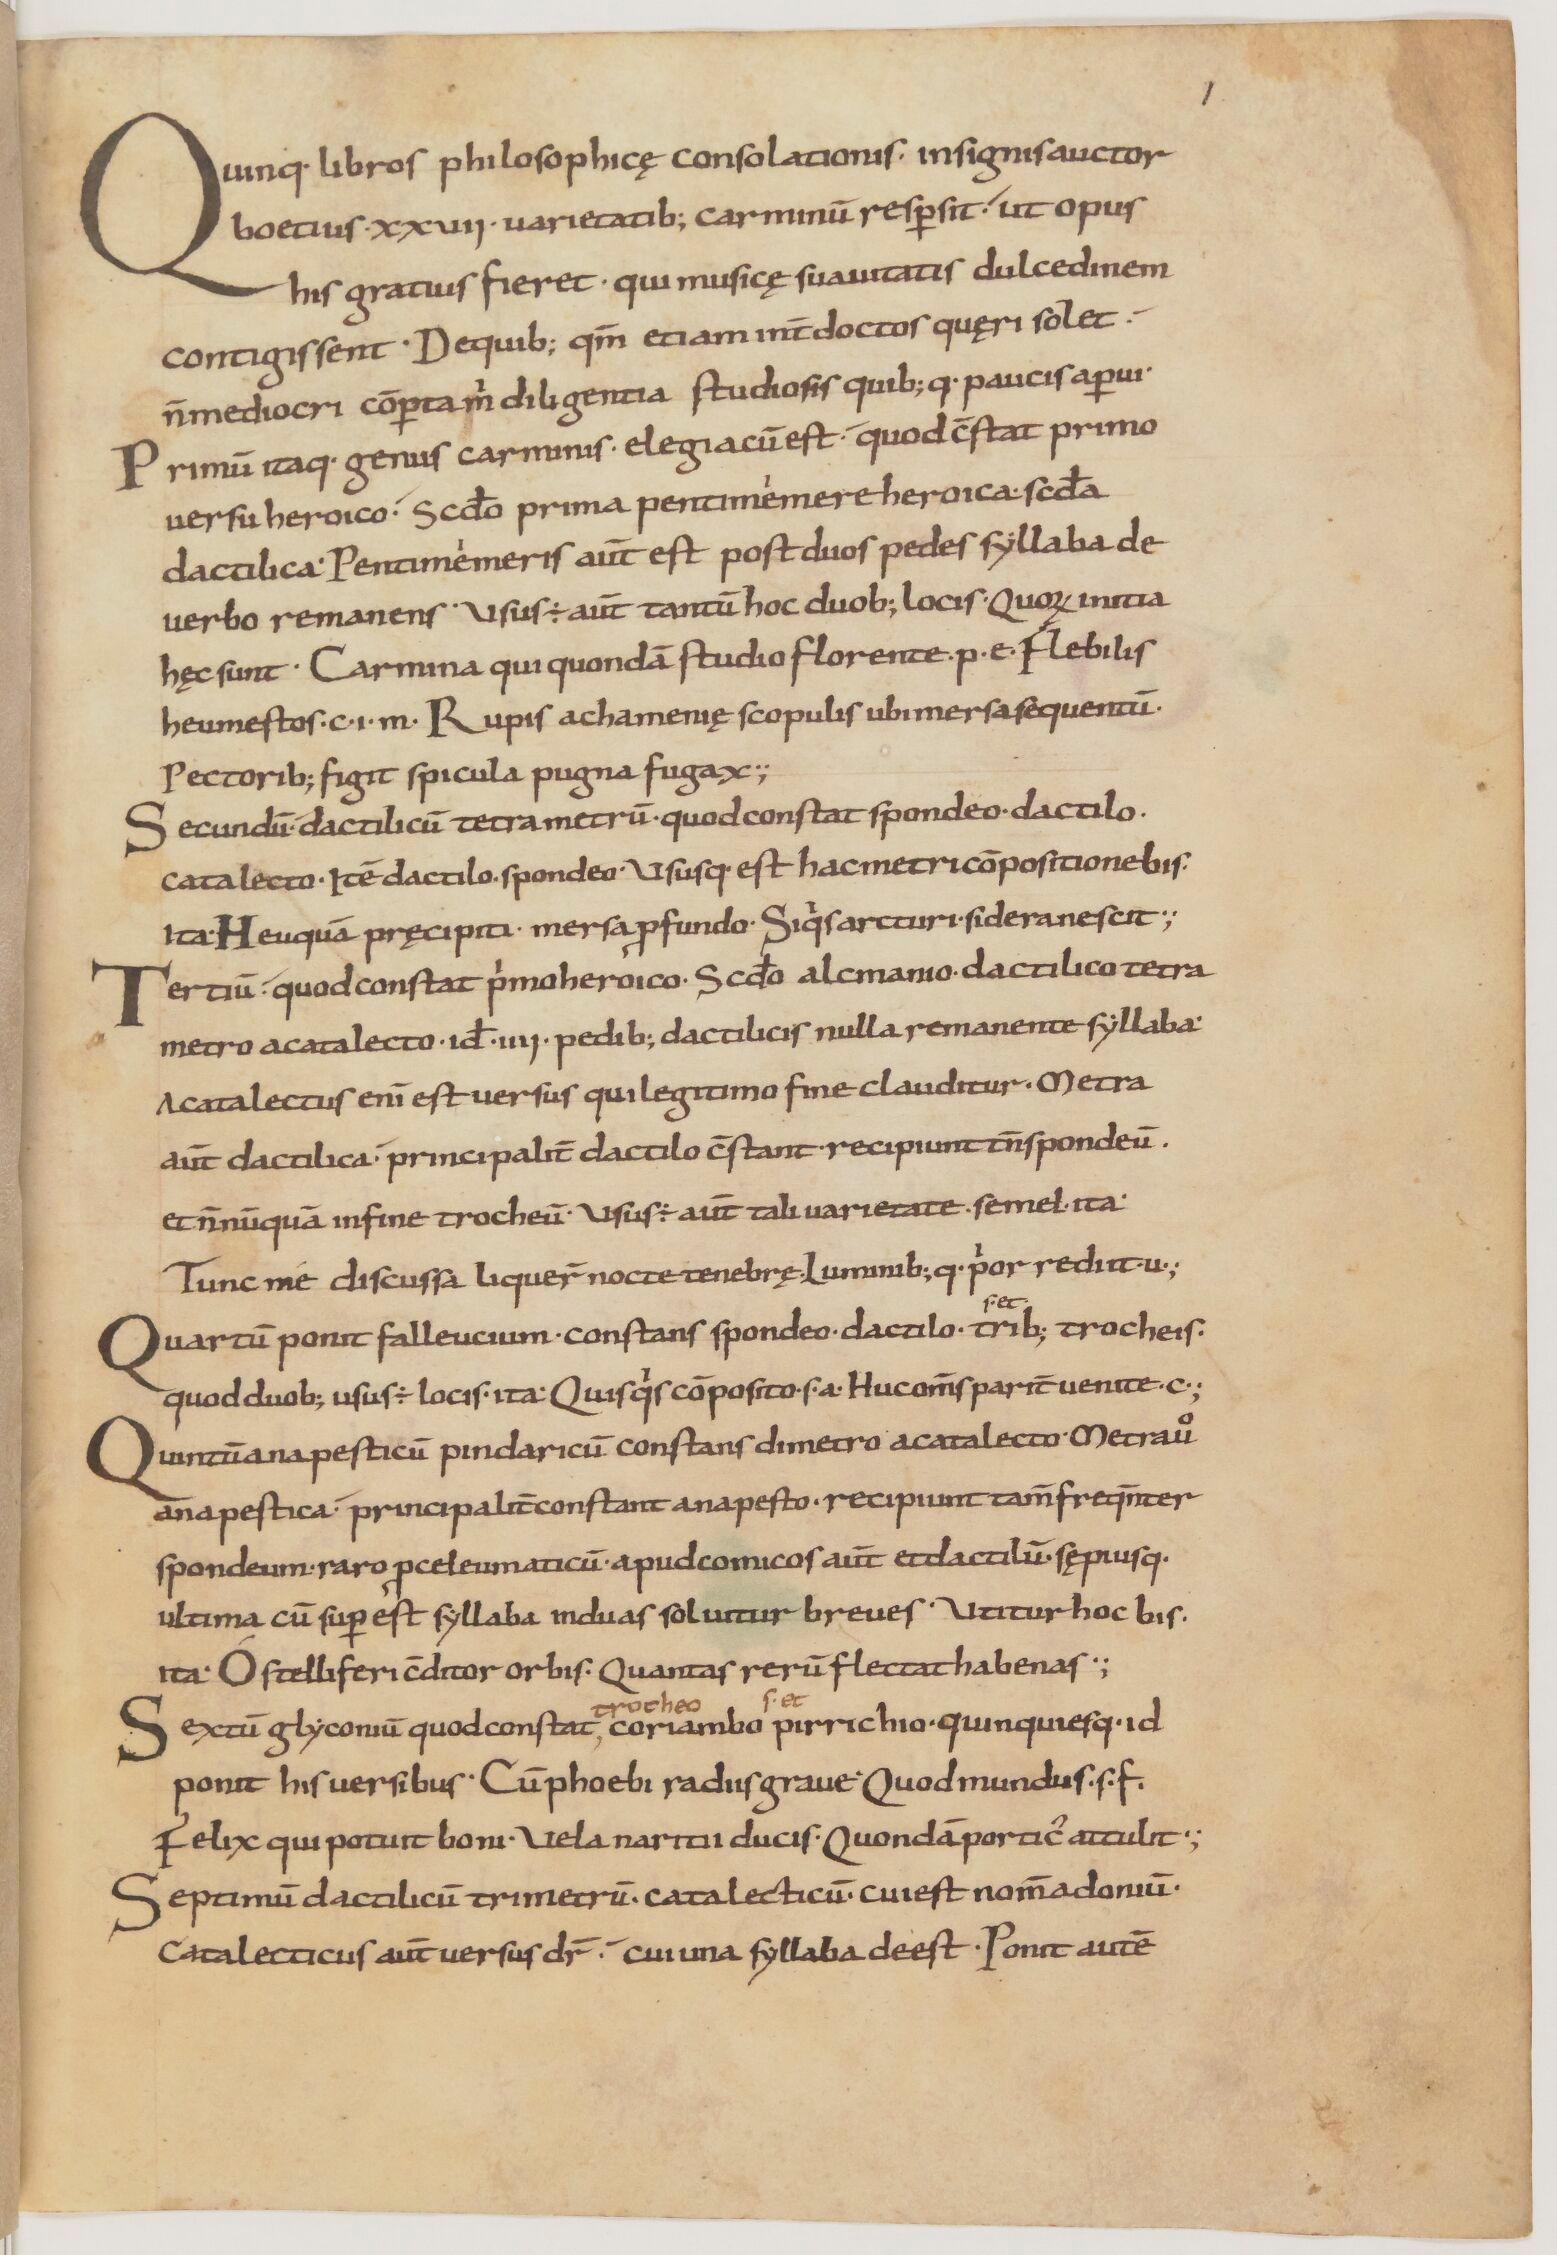 1
Quinq· libros philosophicę consolationis· insignis auctor
boetius· xxvii· uarietatib; carminū resꝑsit·́ ut opus
his gratius fieret· qui musicę suauitatis dulcedinem
contigissent· De quib; qm̄ etiam int̄ doctos quęri solet·́
n̄ mediocri cōꝑta mͥ diligentia studiosis quib;q· paucis aꝑui·
Primū itaq· genus carminis· elegiacū est·́ quod c̄stat primo
uersu heroico·́ Scd̄o prima pentimemere heroica· scd̄a
dactilica· Pentimemeris aut̄ est post duos pedes syllaba de
uerbo remanens· Usus ÷ aut̄ tantū hoc duob; locis· Quoꝝ initia
hęc sunt· Carmina qui quondā studio florente· p· e· Flebilis
heu mestos· c· i· m· Rupis achamenię scopulis ubi mersa sequentū·
Pectorib; figit spicula pugna fugax·;
Secundū·́ dactilicū tetrametrū· quod constat spondeo· dactilo·
catalecto· Itē dactilo· spondeo· Ususq· est hac metri cōpositione bis·
ita· Heu quā pręcipiti· mersa ꝓfundo· Si qͥs arcturi· sidera nescit·;
Tertiū·́ quod constat pͥmo heroico· Scd̄o alcmanio· dactilico tetra
metro acatalecto· id̄· iiii· pedib; dactilicis nulla remanente syllaba·
Acatalectus eni̅ est uersus qui legitimo fine clauditur· Metra
aut̄ dactilica·́ principalit̄ dactilo c̄stant· recipiunt tn̄ spondeū·
et n̄nūquā in fine trocheū· Usus ÷ aut̄ tali uarietate· semel· ita·
Tunc me discussa liquer̄ nocte tenebrę· Luminib;q· pͥor rediit· u·;
s· et·
Quartū ponit falleucium· constans spondeo· dactilo· trib; trocheis·
quod duob; usus ÷ locis· ita· Quisqͥs cōposito· s· a· Huc om̄s parit̄ uenite· c·;
Quintū anapesticū pindaricū constans dimetro acatalecto· Metra uͦ
anapestica·́ principalit̄ constant anapesto· recipiunt tam̄ freqn̄ter
spondeum· raro ꝓceleumaticū· apud comicos aut̄ et dactilū· sępiusq·
ultima cū suꝑ est syllaba in duas soluitur breues· Utitur hoc bis·
ita· O stelliferi c̄ditor orbis· Quantas rerū flectat habenas·;
trocheo s· et
Sextū glyconiū quod constat, coriambo pirrichio· quinquiesq· id
ponit his uersibus· Cū phoebi radiis graue· Quod mundus· s· f·
Felix qui potuit boni· Vela naritii ducis· Quondā porticꝰ attulit·;
Septimū dactilicū trimetrū· catalecticū· cui est nom̄ adoniū·
Catalecticus aut̄ uersus dr̄·́ cui una syllaba deest· Ponit autē